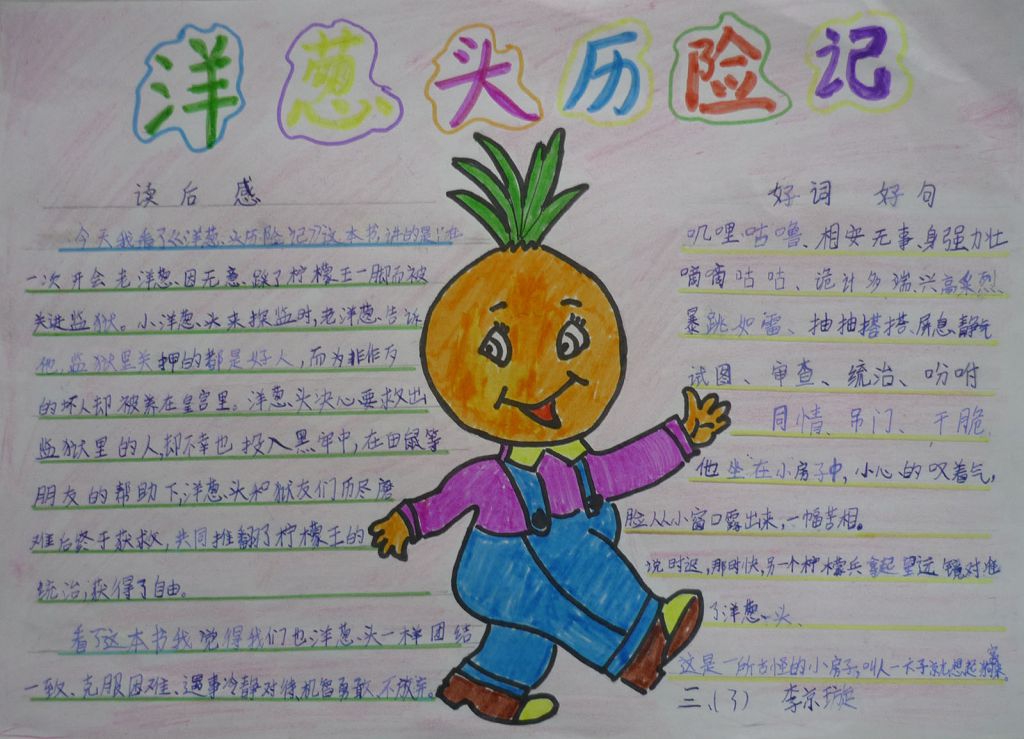 洋葱头历险记
读后感
今天我看了《洋葱头历险记》这本书讲的是:在
一次开会老洋葱因无意踩了柠檬王一脚而被
关进监狱。小洋葱头来探监时,老洋葱告诉
他,监狱里关押的都是好人,而为非作歹
的坏人却被养在皇宫里。洋葱头决心要救出
监狱里的人,却不幸也投入黑牢中,在田鼠等
朋友的帮助下,洋葱头和狱友们历尽磨
难后终于获救,共同推翻了柠檬王的
统治,获得了自由。
看了这本书我觉得我们也洋葱头一样团结
一致、克服困难、遇事冷静对待机智勇敢、不放弃。
好词 好句
叽哩咕噜、相安无事、身强力壮
嘀嘀咕咕、诡计多端、兴高采烈
暴跳如雷、抽抽搭搭、屏息静气
试图、审查、统治、吩咐
同情、吊门、干脆
他坐在小房子中,小心的叹着气,
脸从小窗口露出来,一幅苦相。
说时迟,那时快,另一个柠檬兵拿起望远镜对准
了洋葱头、
这是一所古怪的小房子,叫人一下子就想起
三、(3) 李